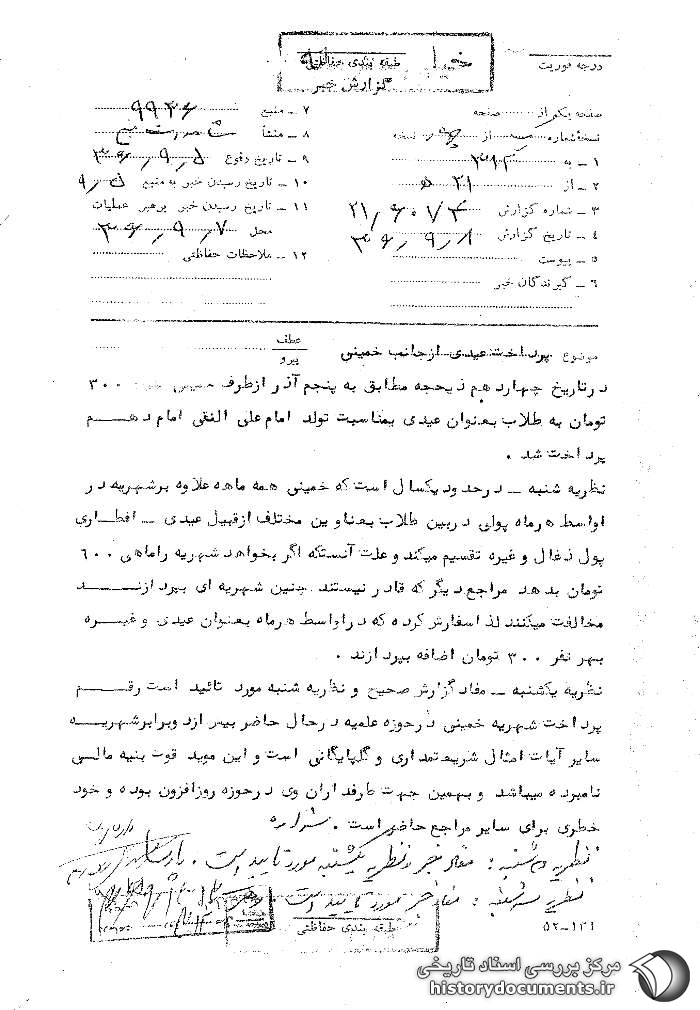 خیلی
طبقه بندی حفاظتی
گزارش خبر
درجه فوریت
صفحه یکم از صفحه
نسخه شماره از نسخه
۱ ـ به ۳۱۲
۲ ـ از ۲۱ ه
۳ ـ شماره گزارش ۲۱٫۶۰۷۴
۴ ـ تاریخ گزارش ۳۶٫۹٫۸
۵ ـ پیوست
۶ ـ گیرندگان خبر
۷ ـ منبع ۹۹۳۶
۸ ـ منشأ
۹ ـ تاریخ وقوع ۳۶٫۹٫۵
۱۰ ـ تاریخ رسیدن خبر به منبع ۹٫۵
۱۱ ـ تاریخ رسیدن خبر برهبر عملیات
محل ۳۶٫۹٫۷
۱۲ ـ ملاحظات حفاظتی
موضوع پرداخت عیدی ازجانب خمینی
عطف
پیرو
درتاریخ چهاردهم ذیحجه مطابق به پنجم آذر ازطرف خمینی ۳۰۰
تومان به طلاب بعنوان عیدی بمناسبت تولد امام علی النقی امام دهـم
پرداخت شد .
نظریه شنبه ـ درحدود یکسال است که خمینی همه ماهه علاوه برشهریه در
اواسط هرماه پولی دربین طلاب بعناوین مختلف ازقبیل عیدی ـ افطاری
پول ذغال و غیره تقسیم میکند و علت آنستکه اگر بخواهد شهریه راماهی ۶۰۰
تومان بدهد مراجع دیگر که قادر نیستند چنین شهریه ای بپردازنـد
مخالفت میکنند لذا سفارش کرده که دراواسط هرماه بعنوان عیدی و غیـره
بهر نفر ۳۰۰ تومان اضافه بپردازند .
نظریه یکشنبه ـ مفاد گزارش صحیح و نظریه شنبه مورد تائید است رقـم
پرداخت شهریه خمینی درحوزه علمیه درحال حاضر بیش ازدوبرابرشهریـه
سایر آیات امثال شریعتمداری و گلپایگانی است و این موید قوت بنیه مالـی
نامبرده میباشد و بهمین جهت طرفداران وی درحوزه روزافزون بوده و خود
خطری برای سایر مراجع حاضر است .
نظریه دوشنبه : مفاد خبر و نظریه یکشنبه مورد تایید است .
نظریه سه شنبه : مفاد خبر مورد تایید است
طبقه بندی حفاظتی
۵۲-۱۲۱
مرکز بررسی اسناد تاریخی
historydocuments.ir